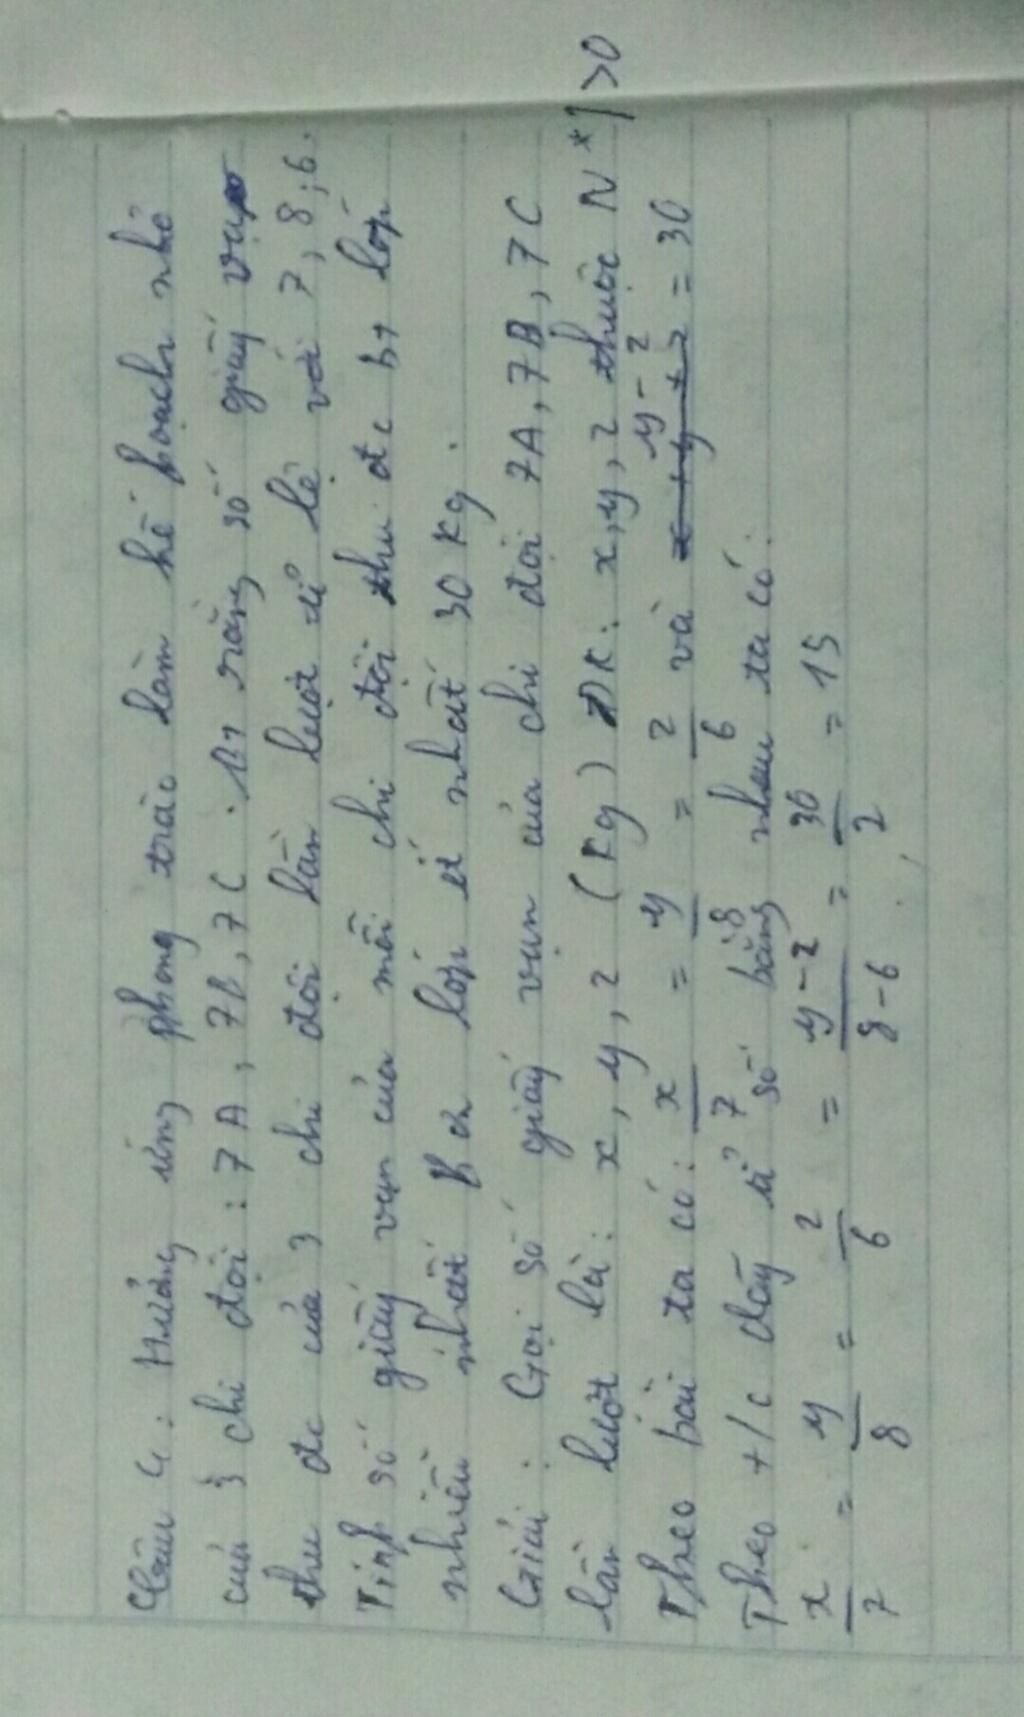 Câu 4: Hưởng ứng phong trào làm kế hoạch nhỏ
của 3 chi đội: 7A, 7B, 7C. Bt rằng số giấy vụn
thu đc của 3 chi đội lần lượt tỉ lệ với 7, 8, 6.
Tính số giấy vụn của mỗi chi đội thu đc bt lớp
nhiều nhất hơn lớp ít nhất 30 Kg.
Giải: Gọi số giấy vụn của chi đội 7A, 7B, 7C
lần lượt là: x, y, z (Kg) ĐK: x, y, z thuộc N*, >0
Theo bài ta có: x/7 = y/8 = z/6 và y - z = 30
Theo t/c dãy tỉ số bằng nhau ta có:
x/7 = y/8 = z/6 = y-z/8-6 = 30/2 = 15